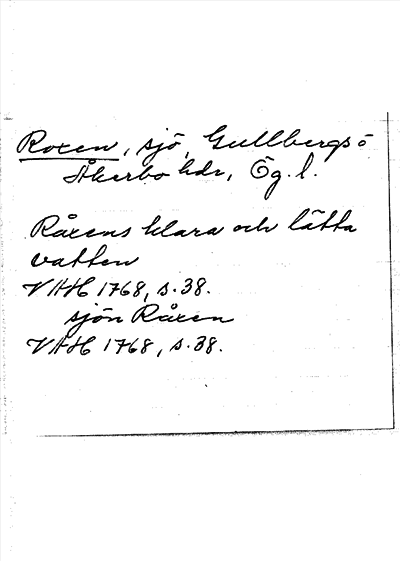 Roxen, sjö, Gullbergs o
Åkerbo hdr, Ög. l.
Råxens klara och lätta
vatten
VAH 1768, s. 38.
sjön Råxen
VAH 1768, s. 38.